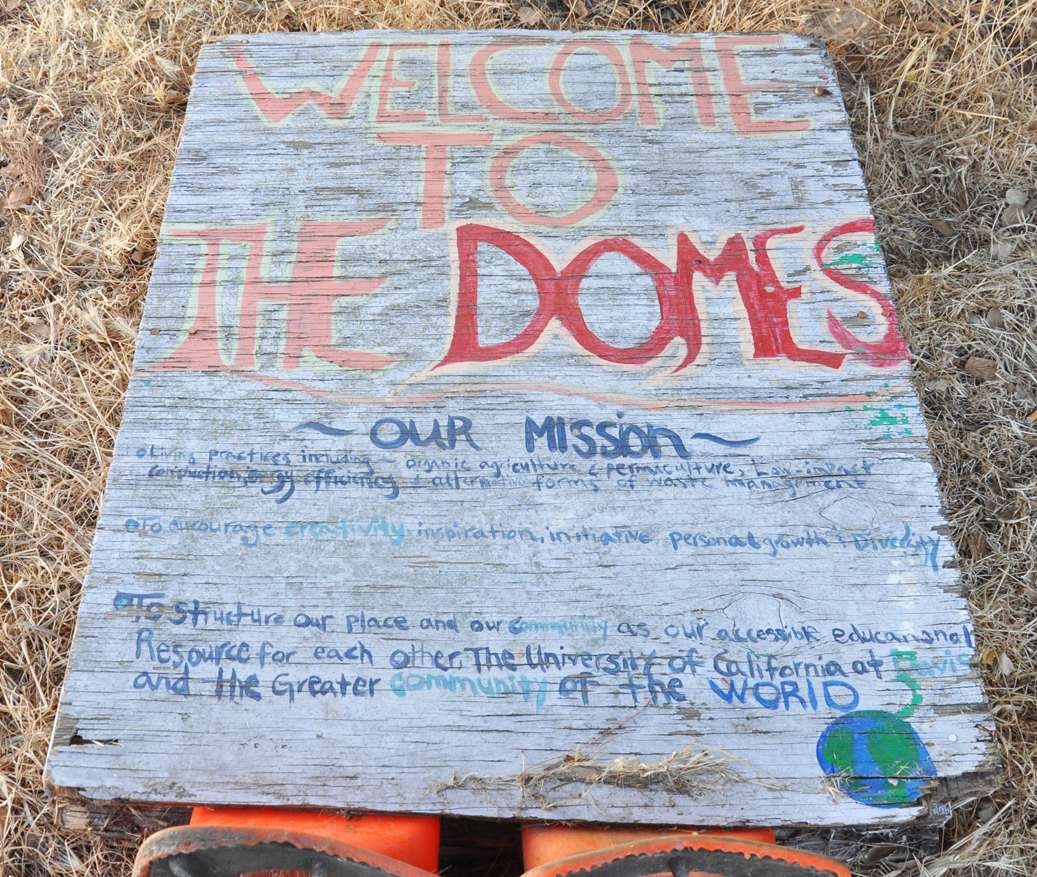 WELCOME
TO
THE DOMES
~ OUR MISSION ~
Living practices including organic agriculture & permaculture, Low-impact
construction, energy efficiency & alternative forms of waste management
To encourage creativity, inspiration, initiative, personal growth & Diversity
To structure our place and our community as our accessible educational
Resource for each other, The University of California at Davis
and the Greater community of the WORLD